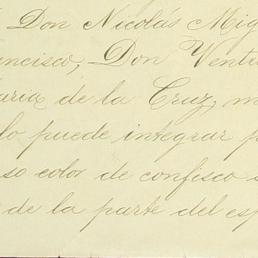 Don Nicolás Mig
ncisco, Don Ventu
aria de la Cruz, m
lo puede integrar p
so color de confisco s
de la parte del esp